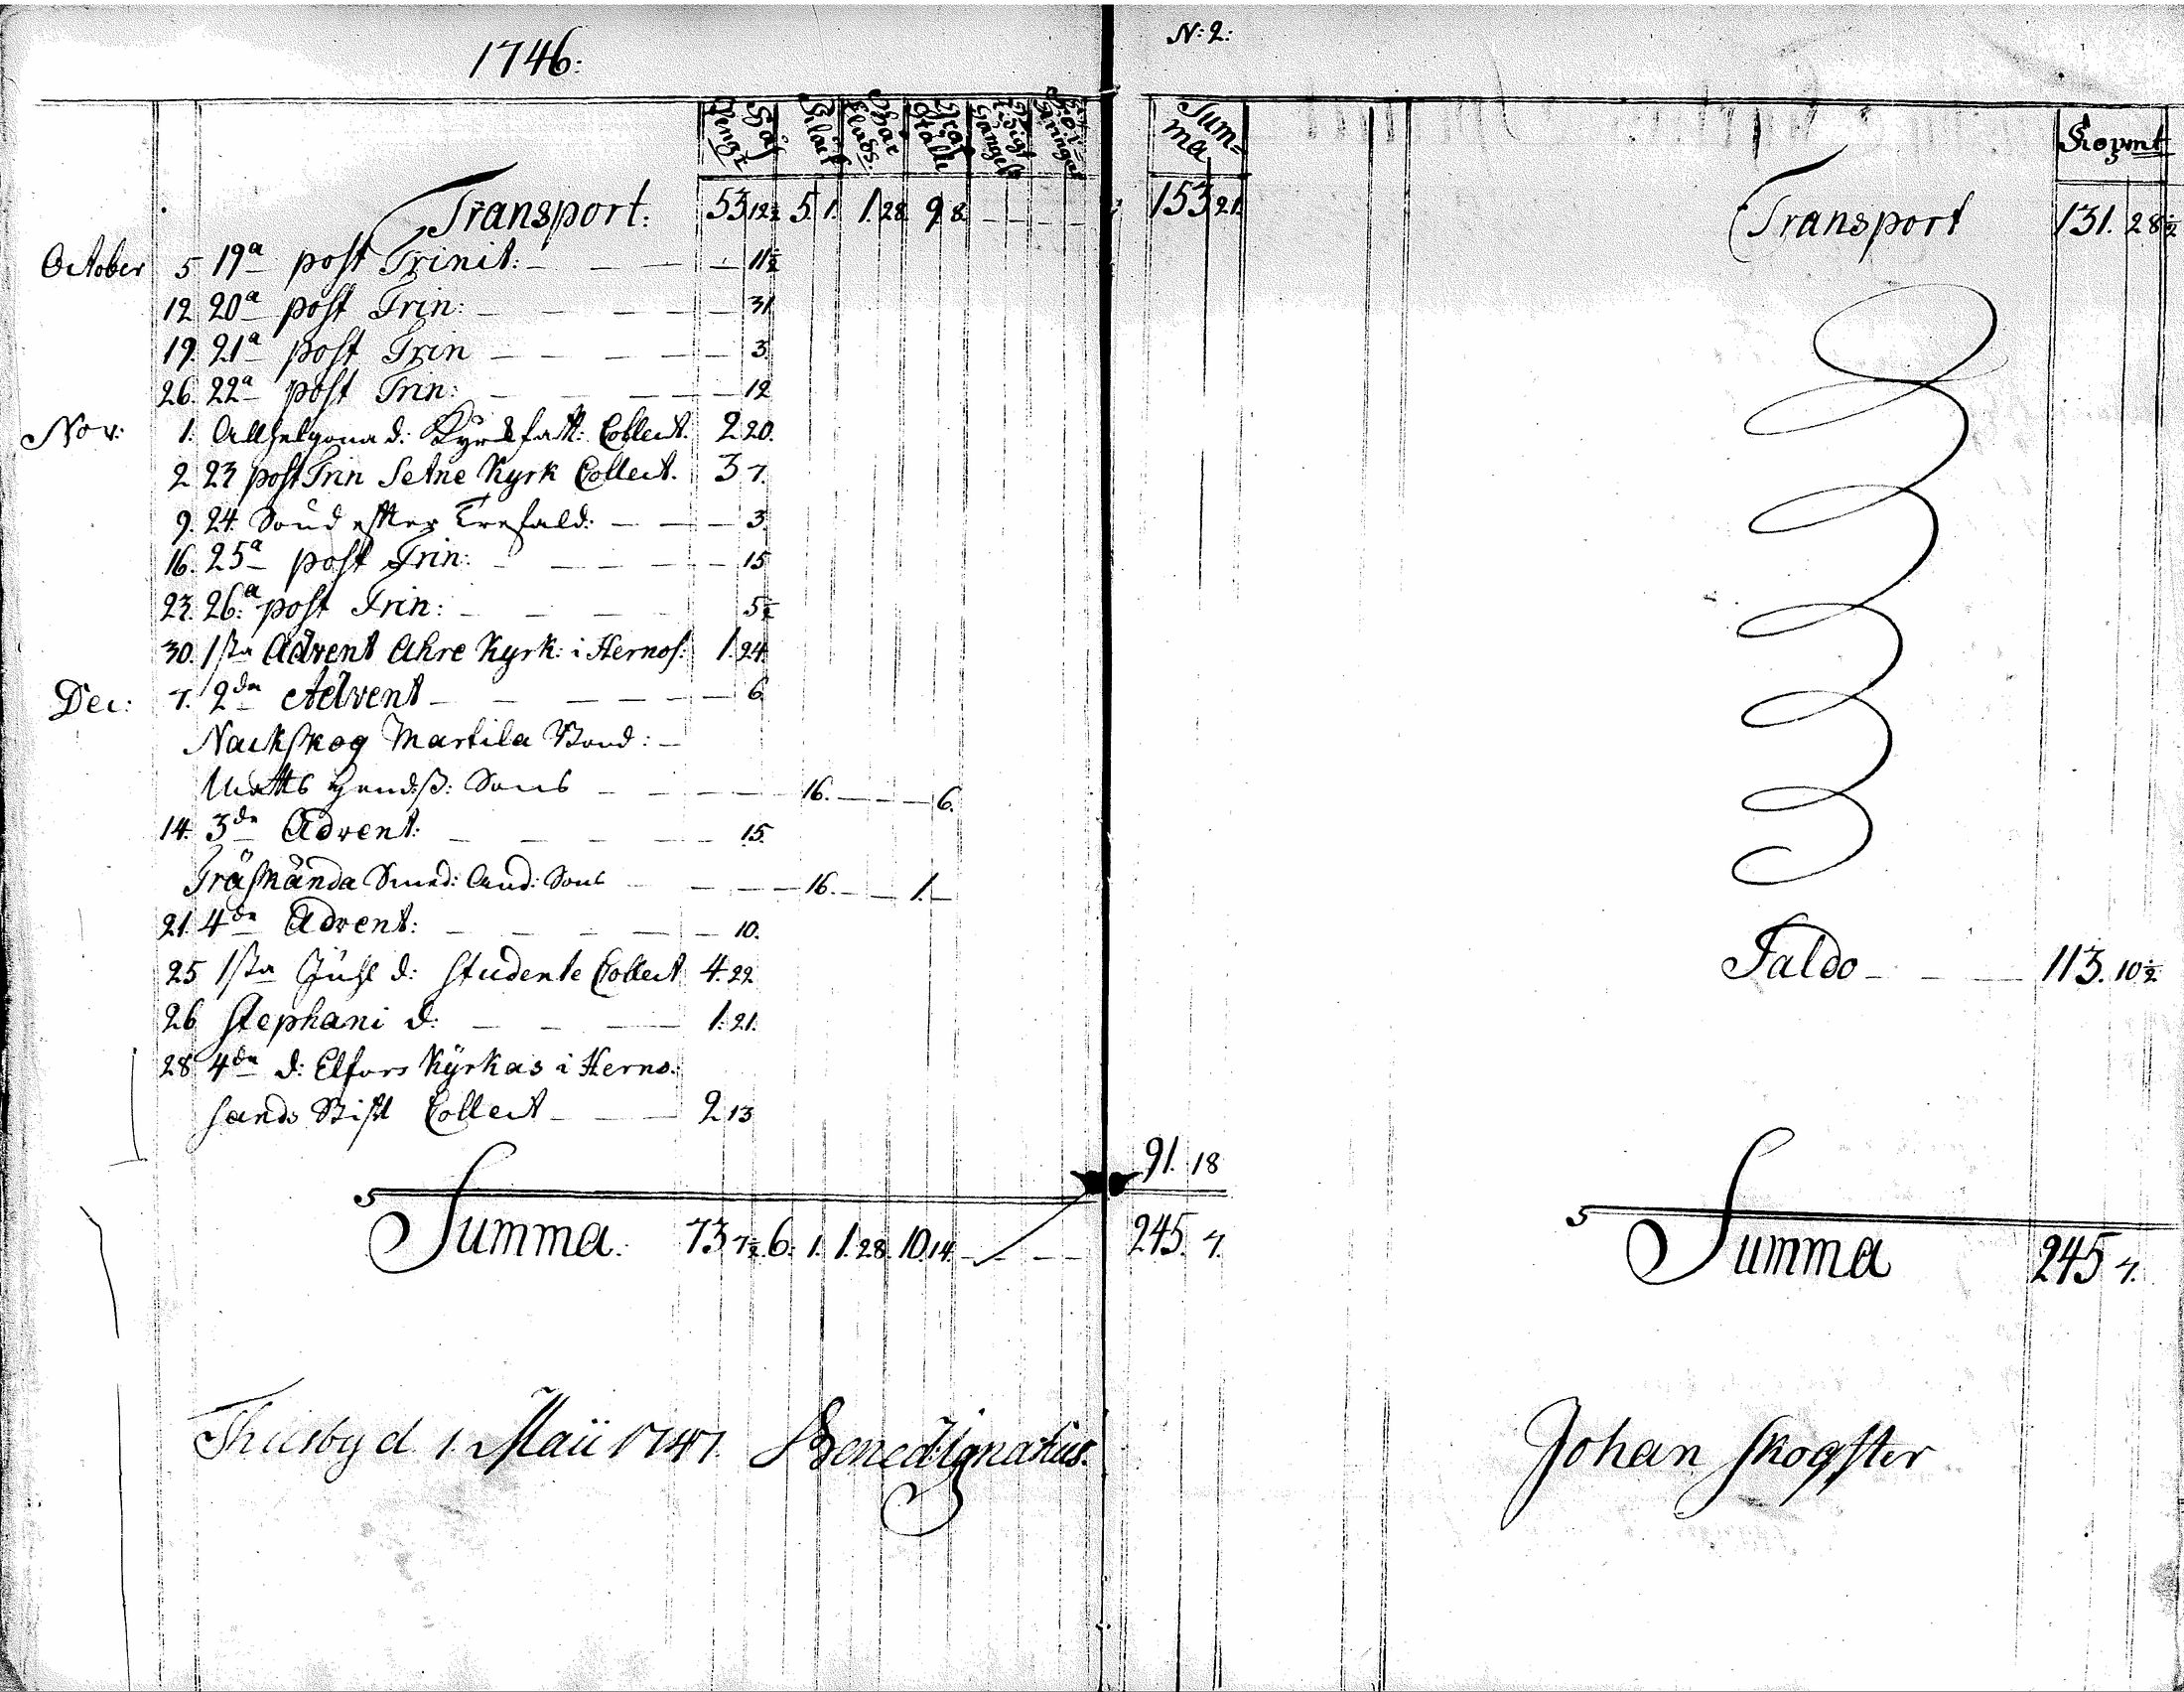 1746:
Håf Pengr
Transport: 53 12½ 5 1. 1. 28. 9. 8. – – – –
October 5 19a post Trinit: – – – – 11½
12 20a post Trin: – – – – 31
19. 21a post Trin – – – – 3.
26. 22a post Trin: – – – – 12
Nov: 1. Allhelgona d: Collect. 2 20.
2 23 post Trin Setne Kyrk Collect. 3 7.
9. 24 Sönd effter Trefald: – – – 3.
16. 25a post Trin: – – – – 15
23. 26.a post Trin: – – – 5½
30. 1sta Advent Ahre Kyrk: i Hernos: 1. 24.
Dec: 7. 2da Advent – – – – 6.
Nackskog Martila Bond: –
Matts Hendss: Sons – – – – 16. – – – 6.
14. 3da Advent: – – – – 15.
Träsk̈ända Smed: And: Sons – – – 16. – – 1. –
21. 4da Advent: – – – – 10.
25 1sta Juhl d: Studente Collect 4. 22.
26 Stephani d: – – – 1. 21.
28 4da d: Elfors Kÿrkas i Herno.
sands Stift Collect – – – 2 13
Summa. 73 7½. 6. 1. 1. 28. 10. 14. – – –
Thusby d. 1. Maii 1747. Bened: Ignatius.
N: 2:
Sum=
ma
153 21.
91. 18
245. 7.
Kopmt
Transport 131. 28½
Saldo – – – 113. 10½
Summa 245 7.
Johan Skogster